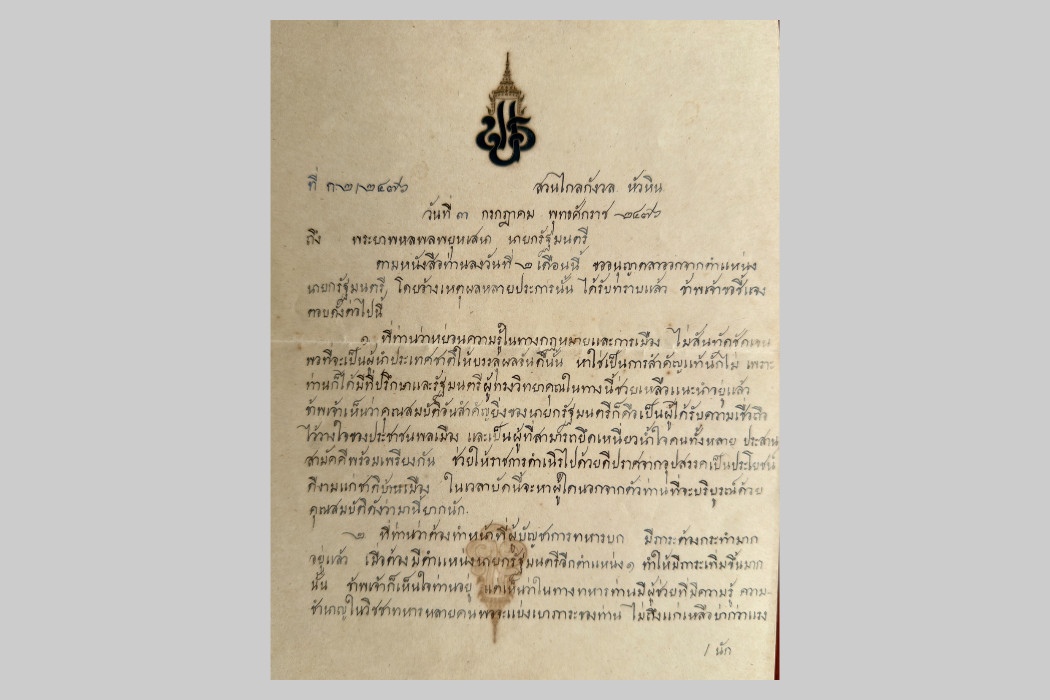 ที่ ก ๒/๒๔๗๖ สวนไกลกังวล หัวหิน
วันที่ ๓ กรกฎาคม พุทธศักราช ๒๔๗๖
ถึง พระยาพหลพลพยุหเสนา นายกรัฐมนตรี
ตามหนังสือท่านลงวันที่ ๒ เดือนนี้ ขออนุญาตลาออกจากตำแหน่ง
นายกรัฐมนตรี, โดยอ้างเหตุผลหลายประการนั้น ได้รับทราบแล้ว ข้าพเจ้าขอชี้แจง
ตอบดั่งต่อไปนี้
๑ ที่ท่านว่าหย่อนความรู้ในทางกฎหมายและการเมือง ไม่สันทัดชัดเจน
พอที่จะเป็นผู้นำประเทศชาติให้บรรลุผลอันดีนั้น หาใช่เป็นการสำคัญแท้นักไม่ เพราะ
ท่านก็ได้มีที่ปรึกษาและรัฐมนตรีผู้ทรงวิทยาคุณในทางนี้ช่วยเหลือแนะนำอยู่แล้ว
ข้าพเจ้าเห็นว่าคุณสมบัติอันสำคัญยิ่งของนายกรัฐมนตรีก็คือเป็นผู้ได้รับความเชื่อถือ
ไว้วางใจของประชาชนพลเมือง และเป็นผู้ที่สามารถยึดเหนี่ยวน้ำใจคนทั้งหลาย ประสาน
สามัคคีพร้อมเพรียงกัน ช่วยให้ราชการดำเนิรไปด้วยดีปราศจากอุปสรรคเป็นประโยชน์
ดีงามแก่ชาติบ้านเมือง ในเวลาบัดนี้จะหาผู้ใดนอกจากตัวท่านที่จะบริบูรณ์ด้วย
คุณสมบัติดังว่ามานี้ยากนัก.
๒ ที่ท่านว่าต้องทำหน้าที่ผู้บัญชาการทหารบก มีภาระต้องกระทำมาก
อยู่แล้ว เมื่อต้องมีตำแหน่งนายกรัฐมนตรีอีกตำแหน่ง ๑ ทำให้มีภาระเพิ่มขึ้นมาก
นั้น ข้าพเจ้าก็เห็นใจท่านอยู่ แต่เห็นว่าในทางทหารท่านมีผู้ช่วยที่มีความรู้ ความ-
ชำนาญในวิชชาทหารหลายคนพอจะแบ่งเบาภาระของท่าน ไม่ถึงแก่เหลือบ่ากว่าแรง
/ นัก